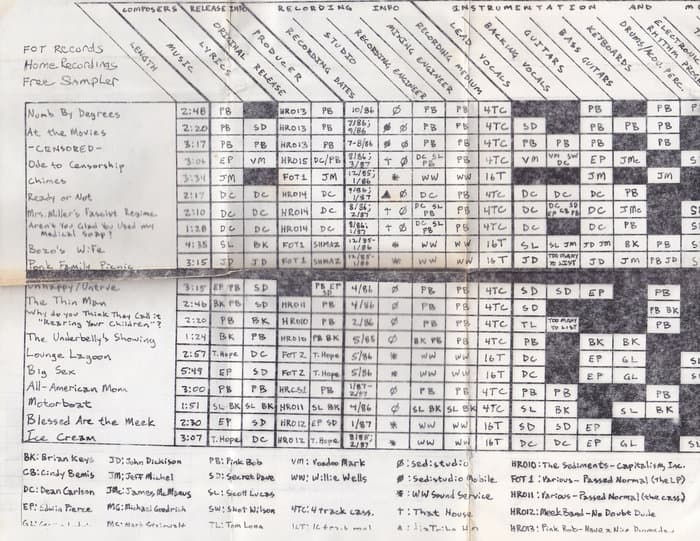 COMPOSERS RELEASE INFO RECORDING INFO INSTRUMENTATION AND
LENGTH MUSIC LYRICS ORIGINAL RELEASE PRODUCER RECORDING DATES STUDIO RECORDING ENGINEER MIXING ENGINEER RECORDING MEDIUM LEAD VOCALS BACKING VOCALS GUITARS BASS GUITARS KEYBOARDS DRUMS/ACOU. PERC. ELECTRONIC RHYTHM
FOT Records
Home Recordings
Free Sampler
Numb By Degrees 2:48 PB HR013 PB 10/86 Ø PB PB 4TC PB PB
At the Movies 2:20 PB SD HR013 PB 7/86; 9/86 Ø PB PB 4TC SD PB PB PB
-CENSORED- 3:17 PB PB HR013 PB 7-8/86 Ø PB PB 4TC PB PB PB
Ode to Censorship 3:06 EP VM HR015 DC/PB 8/86; 3/87 † Ø DC SL PB PB 4TC VM VM SW DC EP JMc PB
Chimes 3:34 JM FOT1 JM 12/85; 1/86 * WW WW 16T JM JM
Ready or Not 2:17 DC DC HR014 DC 9/86; 1/87 ▲ Ø DC PB 4TC DC DC DC PB
Mrs. Miller's Fascist Regime 2:10 DC DC HR014 DC 8/86; 2/87 † Ø DC SL PB PB 4TC DC DC SD EP CB PB DC JMc
Aren't You Glad You Used my Medical Soap? 1:28 DC DC HR014 DC 8/86; 1/87 † Ø DC PB 4TC DC DC DC PB
Bozo's Wife 4:35 SL BK FOT1 SHMAZ 12/85-1/86 * WW WW 16T SL SL JM JD JM BK PB
Pork Family Picnic 3:15 JD JD FOT1 SHMAZ 12/85-1/86 * WW WW 16T JD TOO MANY TO LIST JD JM PB JD
Unhappy/Untrue 3:15 EP PB SD PB EP SD 4/86 Ø PB PB 4TC SD SD EP PB
The Thin Man 2:46 BK PB SD HR011 PB 4/86 Ø PB PB 4TC SD PB BK
Why do you Think They Call it "Rearing Your Children"? 2:20 PB BK HR010 PB 2/86 Ø PB PB 4TC TL TOO MANY TO LIST PB
The Underbelly's Showing 1:24 BK PB HR010 PB BK 5/85 Ø BK PB PB 4TC PB BK BK
Lounge Lagoon 2:57 T.Hope DC FOT2 T.Hope 5/86 * WW WW 16T DC EP GL
Big Sex 5:49 EP SD FOT2 T.Hope 5/86 * WW WW 16T SD EP GL
All-American Mom 3:00 PB PB HRCS1 PB 1/87-2/87 Ø PB PB 4TC PB PB PB
Motorboat 1:51 SL BK SL BK HR011 SL BK 4/86 Ø SL BK SL BK 4TC SL BK SL BK
Blessed Are the Meek 2:30 EP SD HR012 EP SD 1/87 * WW WW 16T SD SD EP
Ice Cream 3:07 T.Hope DC HR012 T.Hope 8/85; 2/87 * WW WW 16T DC DC EP GL
BK: Brian Keys JD: John Dickison PB: Pink Bob VM: Voodoo Mark Ø: Sedistudio HR010: The Sediments - Capitalism, Inc.
CB: Cindy Bemis JM: Jeff Michel SD: Secret Dave WW: Willie Wells : Sedistudio Mobile FOT1: Various - Passed Normal (the LP)
DC: Dean Carlson JMc: James McManus SL: Scott Lucas *: WW Sound Service HR011: Various - Passed Normal (the cass.)
EP: Edwin Pierce MG: Michael Goodrich SW: Shot Wilson 4TC: 4 track cass. †: That House HR012: Meek Band - No Doubt Dude
TL: Tom Long HR013: Pink Bob - Have a Nice